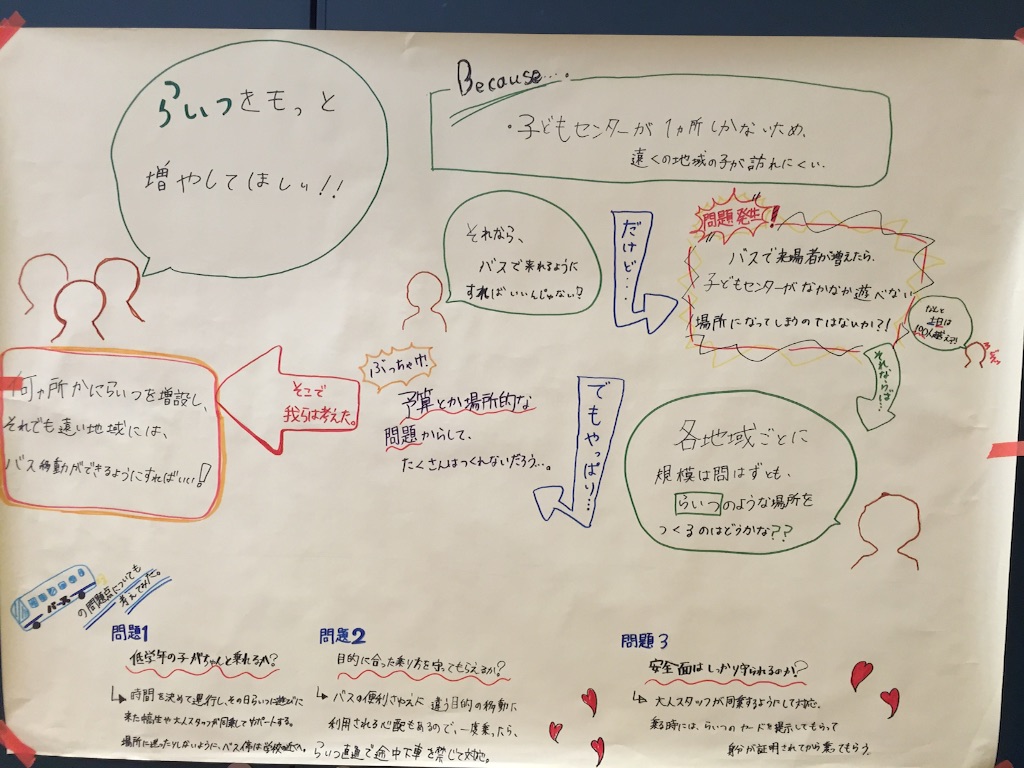 らいつをもっと
増やしてほしい!!
Because....
・子どもセンターが1ヵ所しかないため、
遠くの地域の子が訪れにくい.
それなら、
バスで来れるように
すればいいんじゃない?
だけど‥‥
問題発生!
バスで来場者が増えたら、
子どもセンターがなかなか遊べない
場所になってしまうのではないか?!
なんと
土日は
190人越え??
それならば…
各地域ごとに
規模は問はずとも、
らいつのような場所を
つくるのはどうかな??
でもやっぱり…
ぶっちゃけ!
予算とか場所的な
問題からして、
たくさんはつくれないだろう…。
そこで
我らは考えた。
何ヵ所かにらいつを増設し、
それでも遠い地域には、
バス移動ができるようにすればいい!
バース
の問題点についても
考えてみた。
問題1
低学年の子がちゃんと乗れるか?
↳ 時間を決めて運行し、その日らいつに遊びに
来た高校生や大人スタッフが同乗してサポートする。
場所に迷ったりしないように、バス停は学校近くへ。
問題2
目的に合った乗り方を守ってもらえるか?
↳ バスの便利さゆえに違う目的の移動に
利用される心配もあるので、一度乗ったら、
らいつ直通で途中下車を禁じて対処。
問題3
安全面はしっかり守られるのか?
↳ 大人スタッフが同乗するようにして対応。
乗る時には、らいつのカードを提示してもらって
身分が証明されてから乗ってもらう.